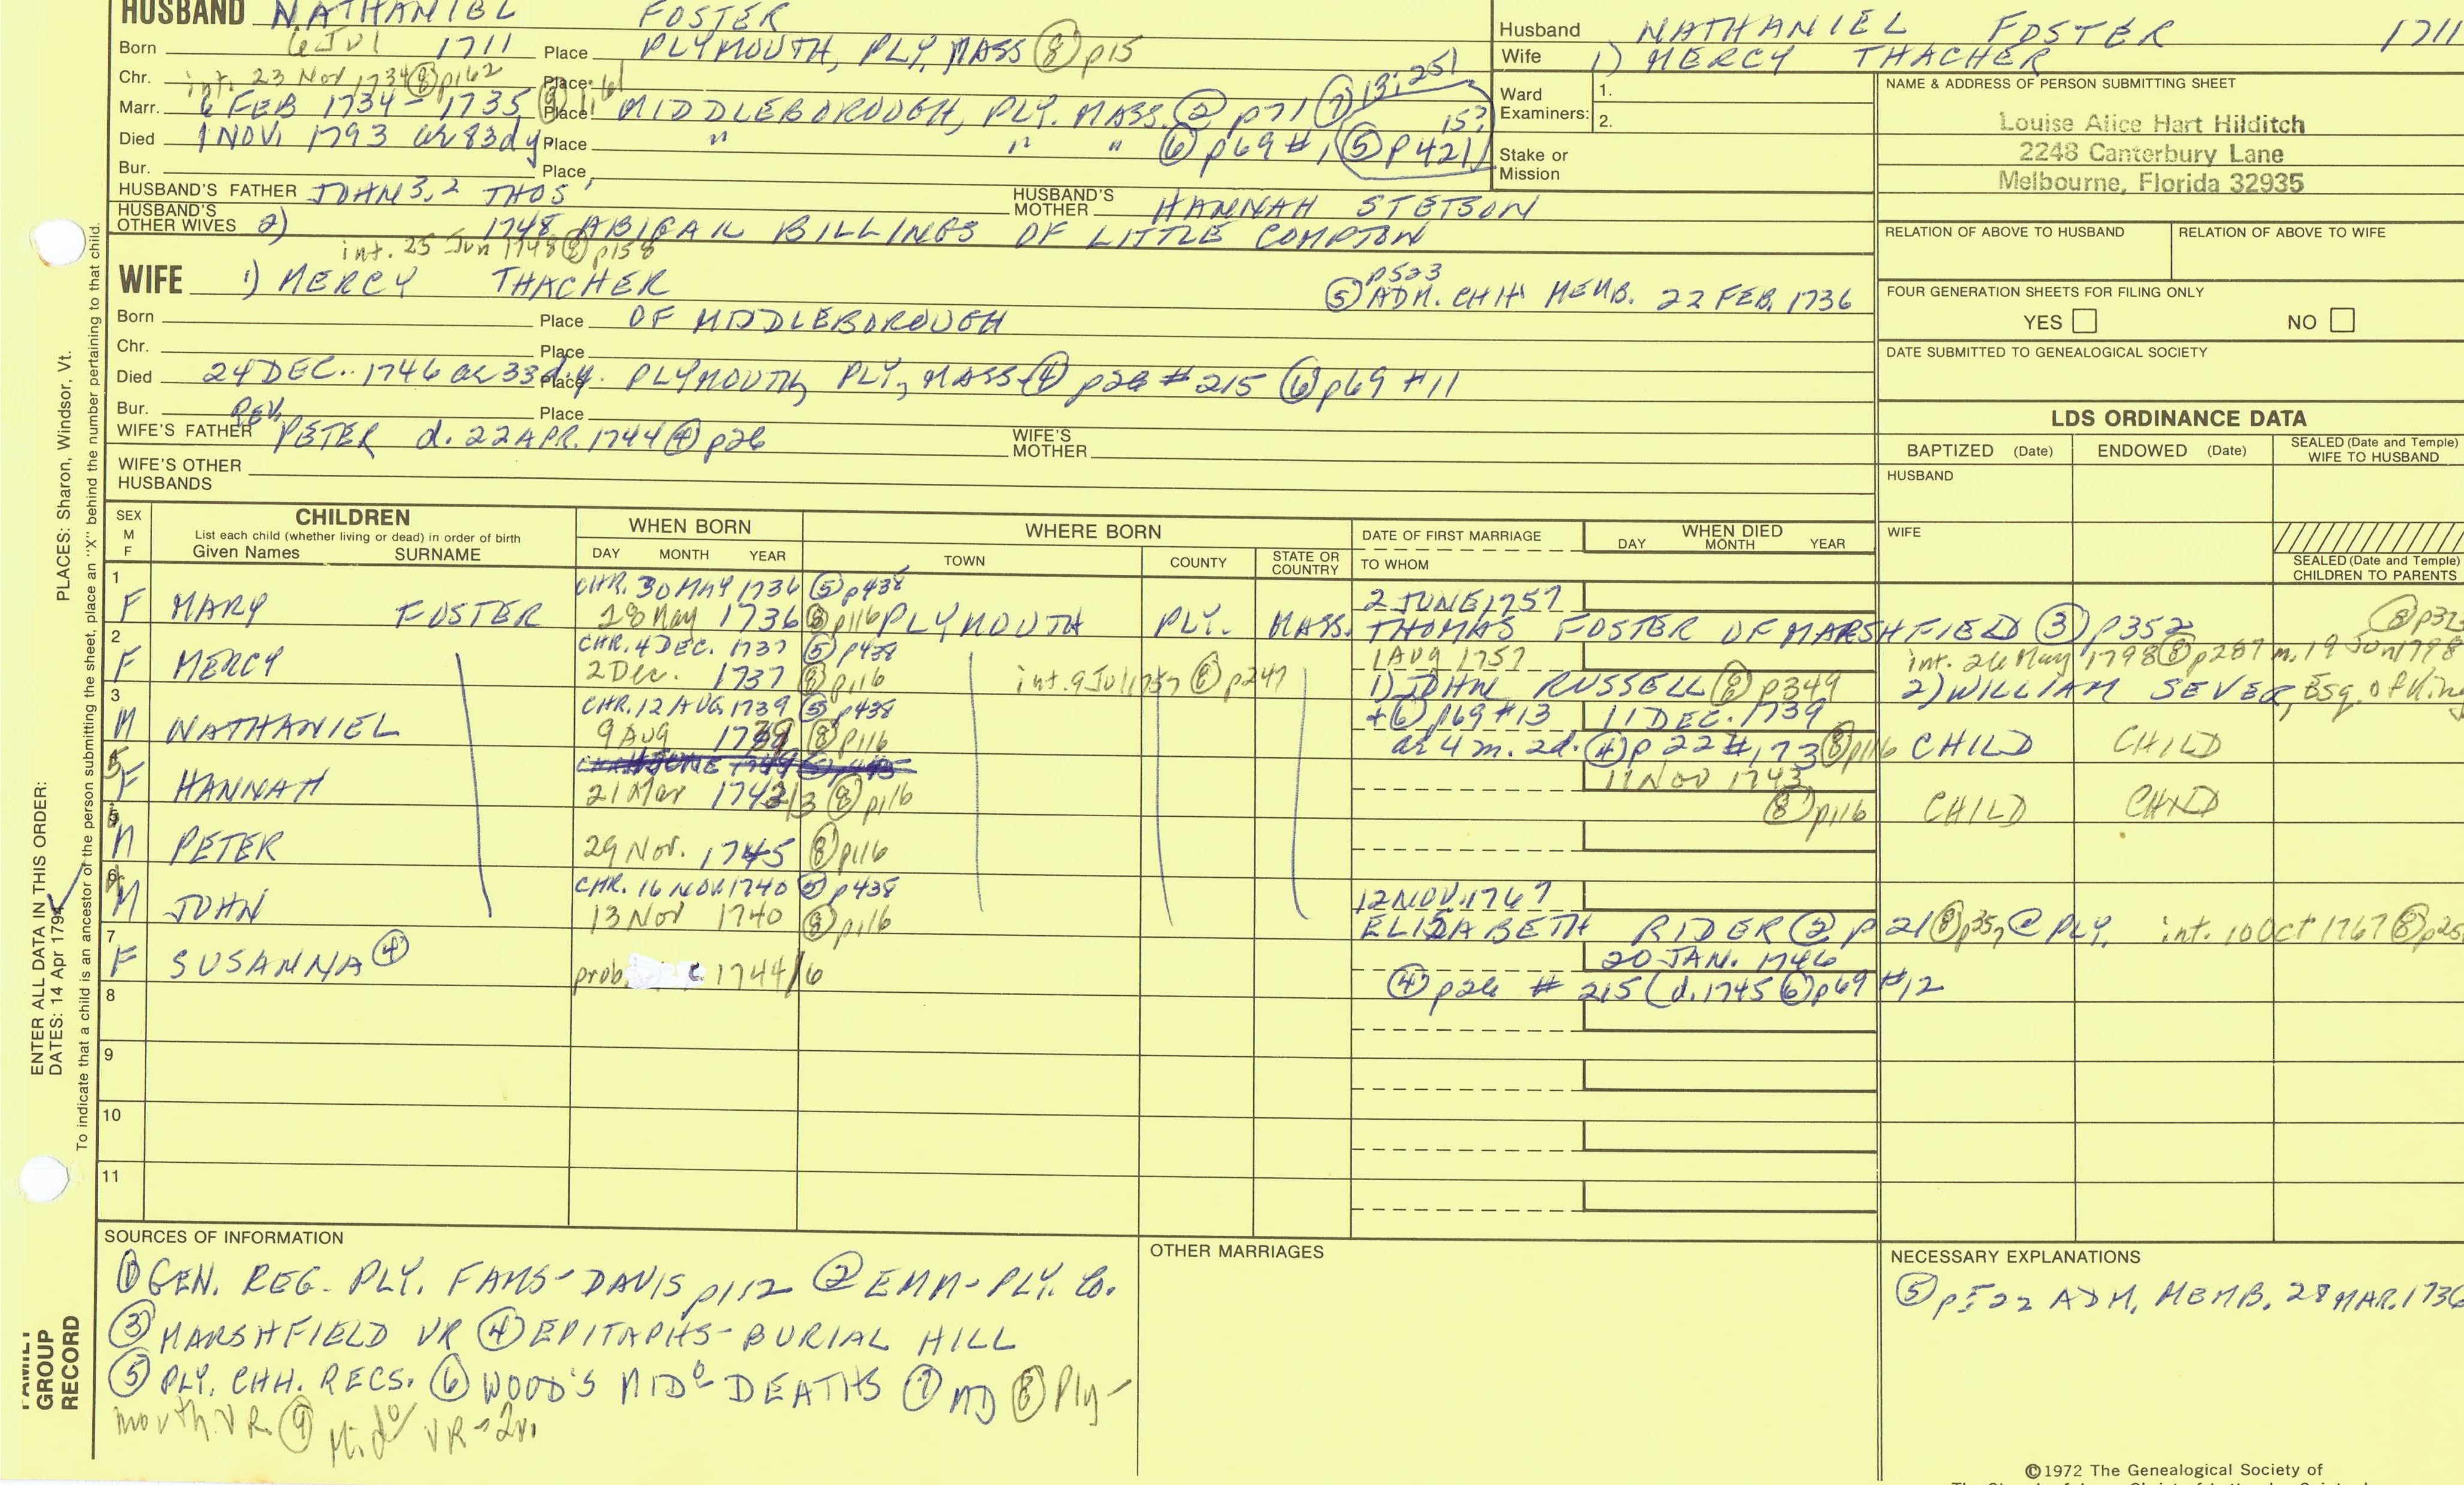 HUSBAND NATHANIEL FOSTER
Born 6 Jul 1711 Place PLYMOUTH, PLY, MASS (8) p15
Chr. int. 23 Nov 1734 (8) p162 Place
Marr. 6 FEB 1734-1735 Place MIDDLEBOROUGH, PLY. MASS. (2) p71 (7) 13:251
15?
Died 1 NOV. 1793 ae 83d y Place " " " (6) p69 #1 (5) p421
Bur. Place
HUSBAND'S FATHER JOHN 3,2 THOS' HUSBAND'S MOTHER HANNAH STETSON
HUSBAND'S OTHER WIVES 2) 1748 ABIGAIL BILLINGS OF LITTLE COMPTON
int. 25 Jun 1748 (8) p158
WIFE 1) MERCY THACHER
p523
(5) ADM. CHH MEMB. 22 FEB. 1736
Born Place OF MIDDLEBOROUGH
Chr. Place
Died 24 DEC. 1746 ae 33d y. Place PLYMOUTH, PLY, MASS (4) p26 #215 (6) p69 #11
Bur. Place
WIFE'S FATHER REV. PETER d. 22 APR. 1744 (4) p26 WIFE'S MOTHER
WIFE'S OTHER HUSBANDS
Husband NATHANIEL FOSTER 1711
Wife 1) MERCY THACHER
Ward Examiners: 1.
2.
Stake or Mission
NAME & ADDRESS OF PERSON SUBMITTING SHEET
Louise Alice Hart Hilditch
2248 Canterbury Lane
Melbourne, Florida 32935
RELATION OF ABOVE TO HUSBAND RELATION OF ABOVE TO WIFE
FOUR GENERATION SHEETS FOR FILING ONLY
YES NO
DATE SUBMITTED TO GENEALOGICAL SOCIETY
LDS ORDINANCE DATA
BAPTIZED (Date) ENDOWED (Date) SEALED (Date and Temple) WIFE TO HUSBAND
HUSBAND
WIFE
SEALED (Date and Temple) CHILDREN TO PARENTS
SEX M F
CHILDREN
List each child (whether living or dead) in order of birth
Given Names SURNAME
WHEN BORN
DAY MONTH YEAR
WHERE BORN
TOWN COUNTY STATE OR COUNTRY
DATE OF FIRST MARRIAGE
TO WHOM
WHEN DIED
DAY MONTH YEAR
1 CHR. 30 MAY 1736 (5) p438 2 JUNE 1757
F MARY FOSTER 28 May 1736 (8) p116 PLYMOUTH PLY. MASS. THOMAS FOSTER OF MARSHFIELD (3) p352 (8) p32
2 CHR. 4 DEC. 1737 (5) p438 1 AUG 1757 int. 26 May 1798 (8) p287 m. 19 Jun 1798
F MERCY 2 Dec. 1737 (8) p116 int. 9 Jul 1757 (8) p247 1) JOHN RUSSELL (8) p349 2) WILLIAM SEVER, Esq. of Kin
3 CHR. 12 AUG 1739 (5) p438 + (6) p69 #13 11 DEC. 1739
M NATHANIEL 9 Aug 1739 (8) p116 ae 4 m. 2d. (4) p22 #173 (8) p116 CHILD CHILD
11 Nov 1743
F HANNAH 21 Mar 1742/3 (8) p116 (8) p116 CHILD CHILD
M PETER 29 Nov. 1745 (8) p116
6 CHR. 16 NOV 1740 (5) p438 12 NOV. 1767
M JOHN 13 Nov 1740 (8) p116 ELIZABETH RIDER (2) p21 (8) p357 @ PLY. int. 10 Oct 1767 (8) p25
7 20 JAN. 1746
F SUSANNA (4) prob. c 1744/6 (4) p26 #215 (d. 1745 (6) p69 #12
8
9
10
11
SOURCES OF INFORMATION
(1) GEN. REG. PLY. FAMS-DAVIS p112 (2) EMM-PLY. Co.
(3) MARSHFIELD VR (4) EPITAPHS-BURIAL HILL
(5) PLY. CHH. RECS. (6) WOOD'S MIDo DEATHS (7) MD (8) Ply-
mouth VR. (9) Mido VR
OTHER MARRIAGES
NECESSARY EXPLANATIONS
(5) p522 ADM. MEMB. 28 MAR. 1736
©1972 The Genealogical Society of
PLACES: Sharon, Windsor, Vt.
ENTER ALL DATA IN THIS ORDER:
DATES: 14 Apr 1794
To indicate that a child is an ancestor of the person submitting the sheet, place an "X" behind the number pertaining to that child.
FAMILY
GROUP
RECORD